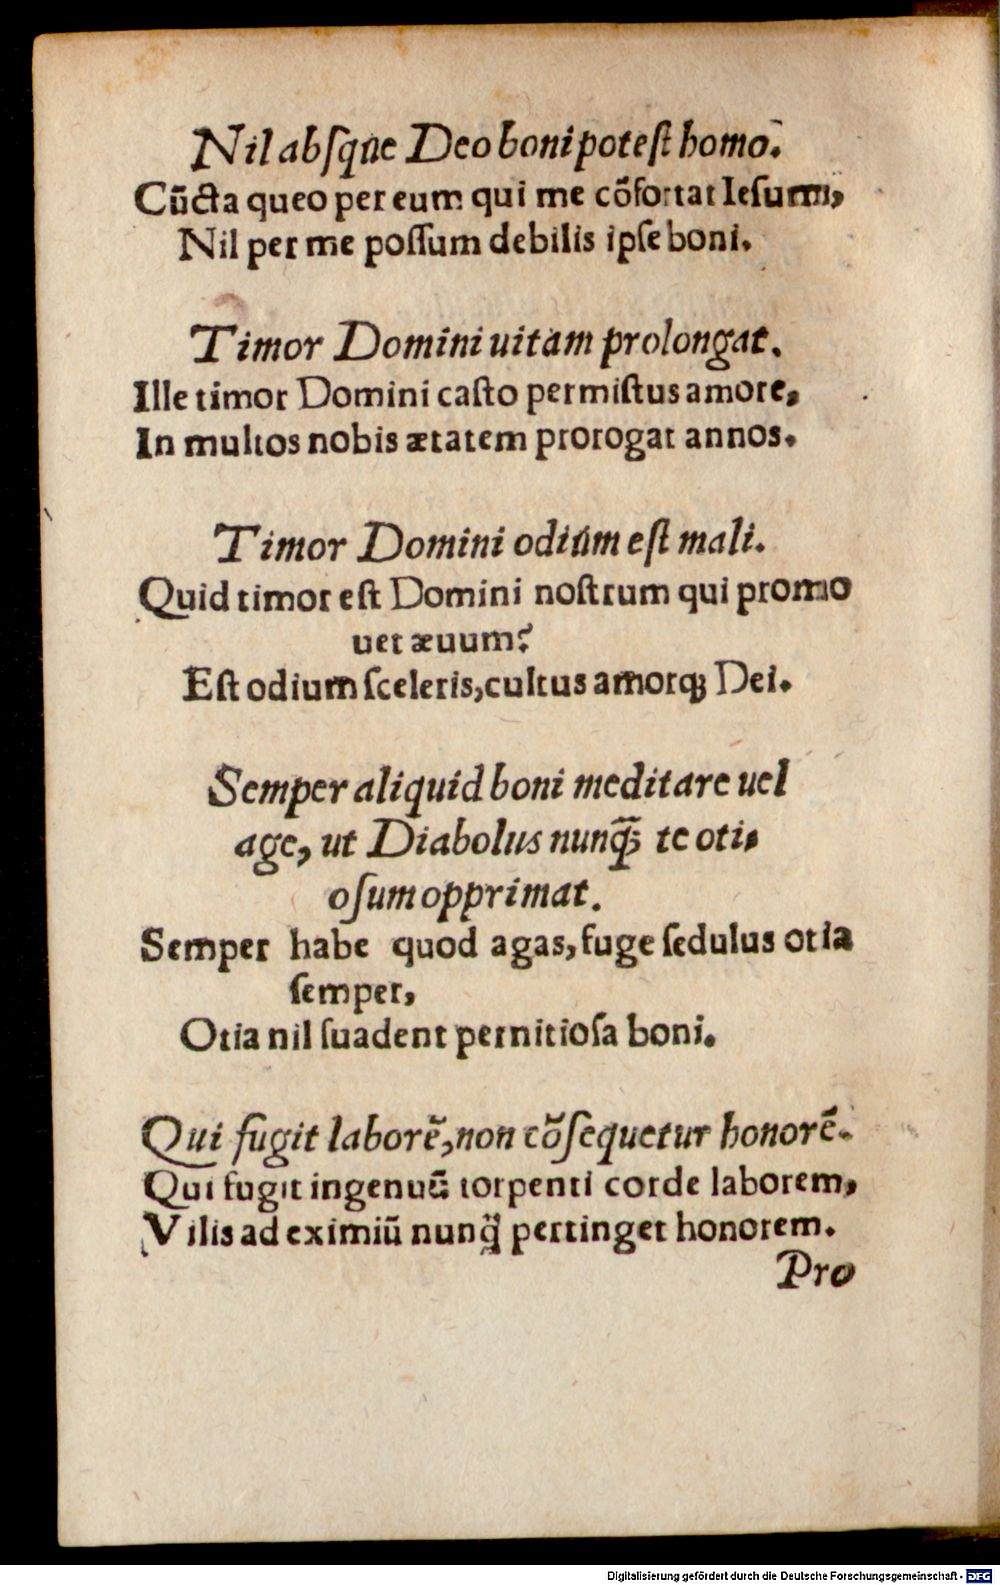 Nil absque Deo boni potest homo.
Cūcta queo per eum qui me cōfortat Iesum,
Nil per me possum debilis ipse boni.
Timor Domini uitam prolongat.
Ille timor Domini casto permistus amore,
In multos nobis ætatem prorogat annos.
Timor Domini odium est mali.
Quid timor est Domini nostrum qui promo
uet æuum?
Est odium sceleris, cultus amorq; Dei.
Semper aliquid boni meditare uel
age, ut Diabolus nunq̃ te oti,
osum opprimat.
Semper habe quod agas, fuge sedulus otia
semper,
Otia nil suadent pernitiosa boni.
Qui fugit laborē, non cōsequetur honorē.
Qui fugit ingenuū torpenti corde laborem,
Vilis ad eximiū nunq̃ pertinget honorem.
Pro
Digitalisierung gefördert durch die Deutsche Forschungsgemeinschaft - DFG